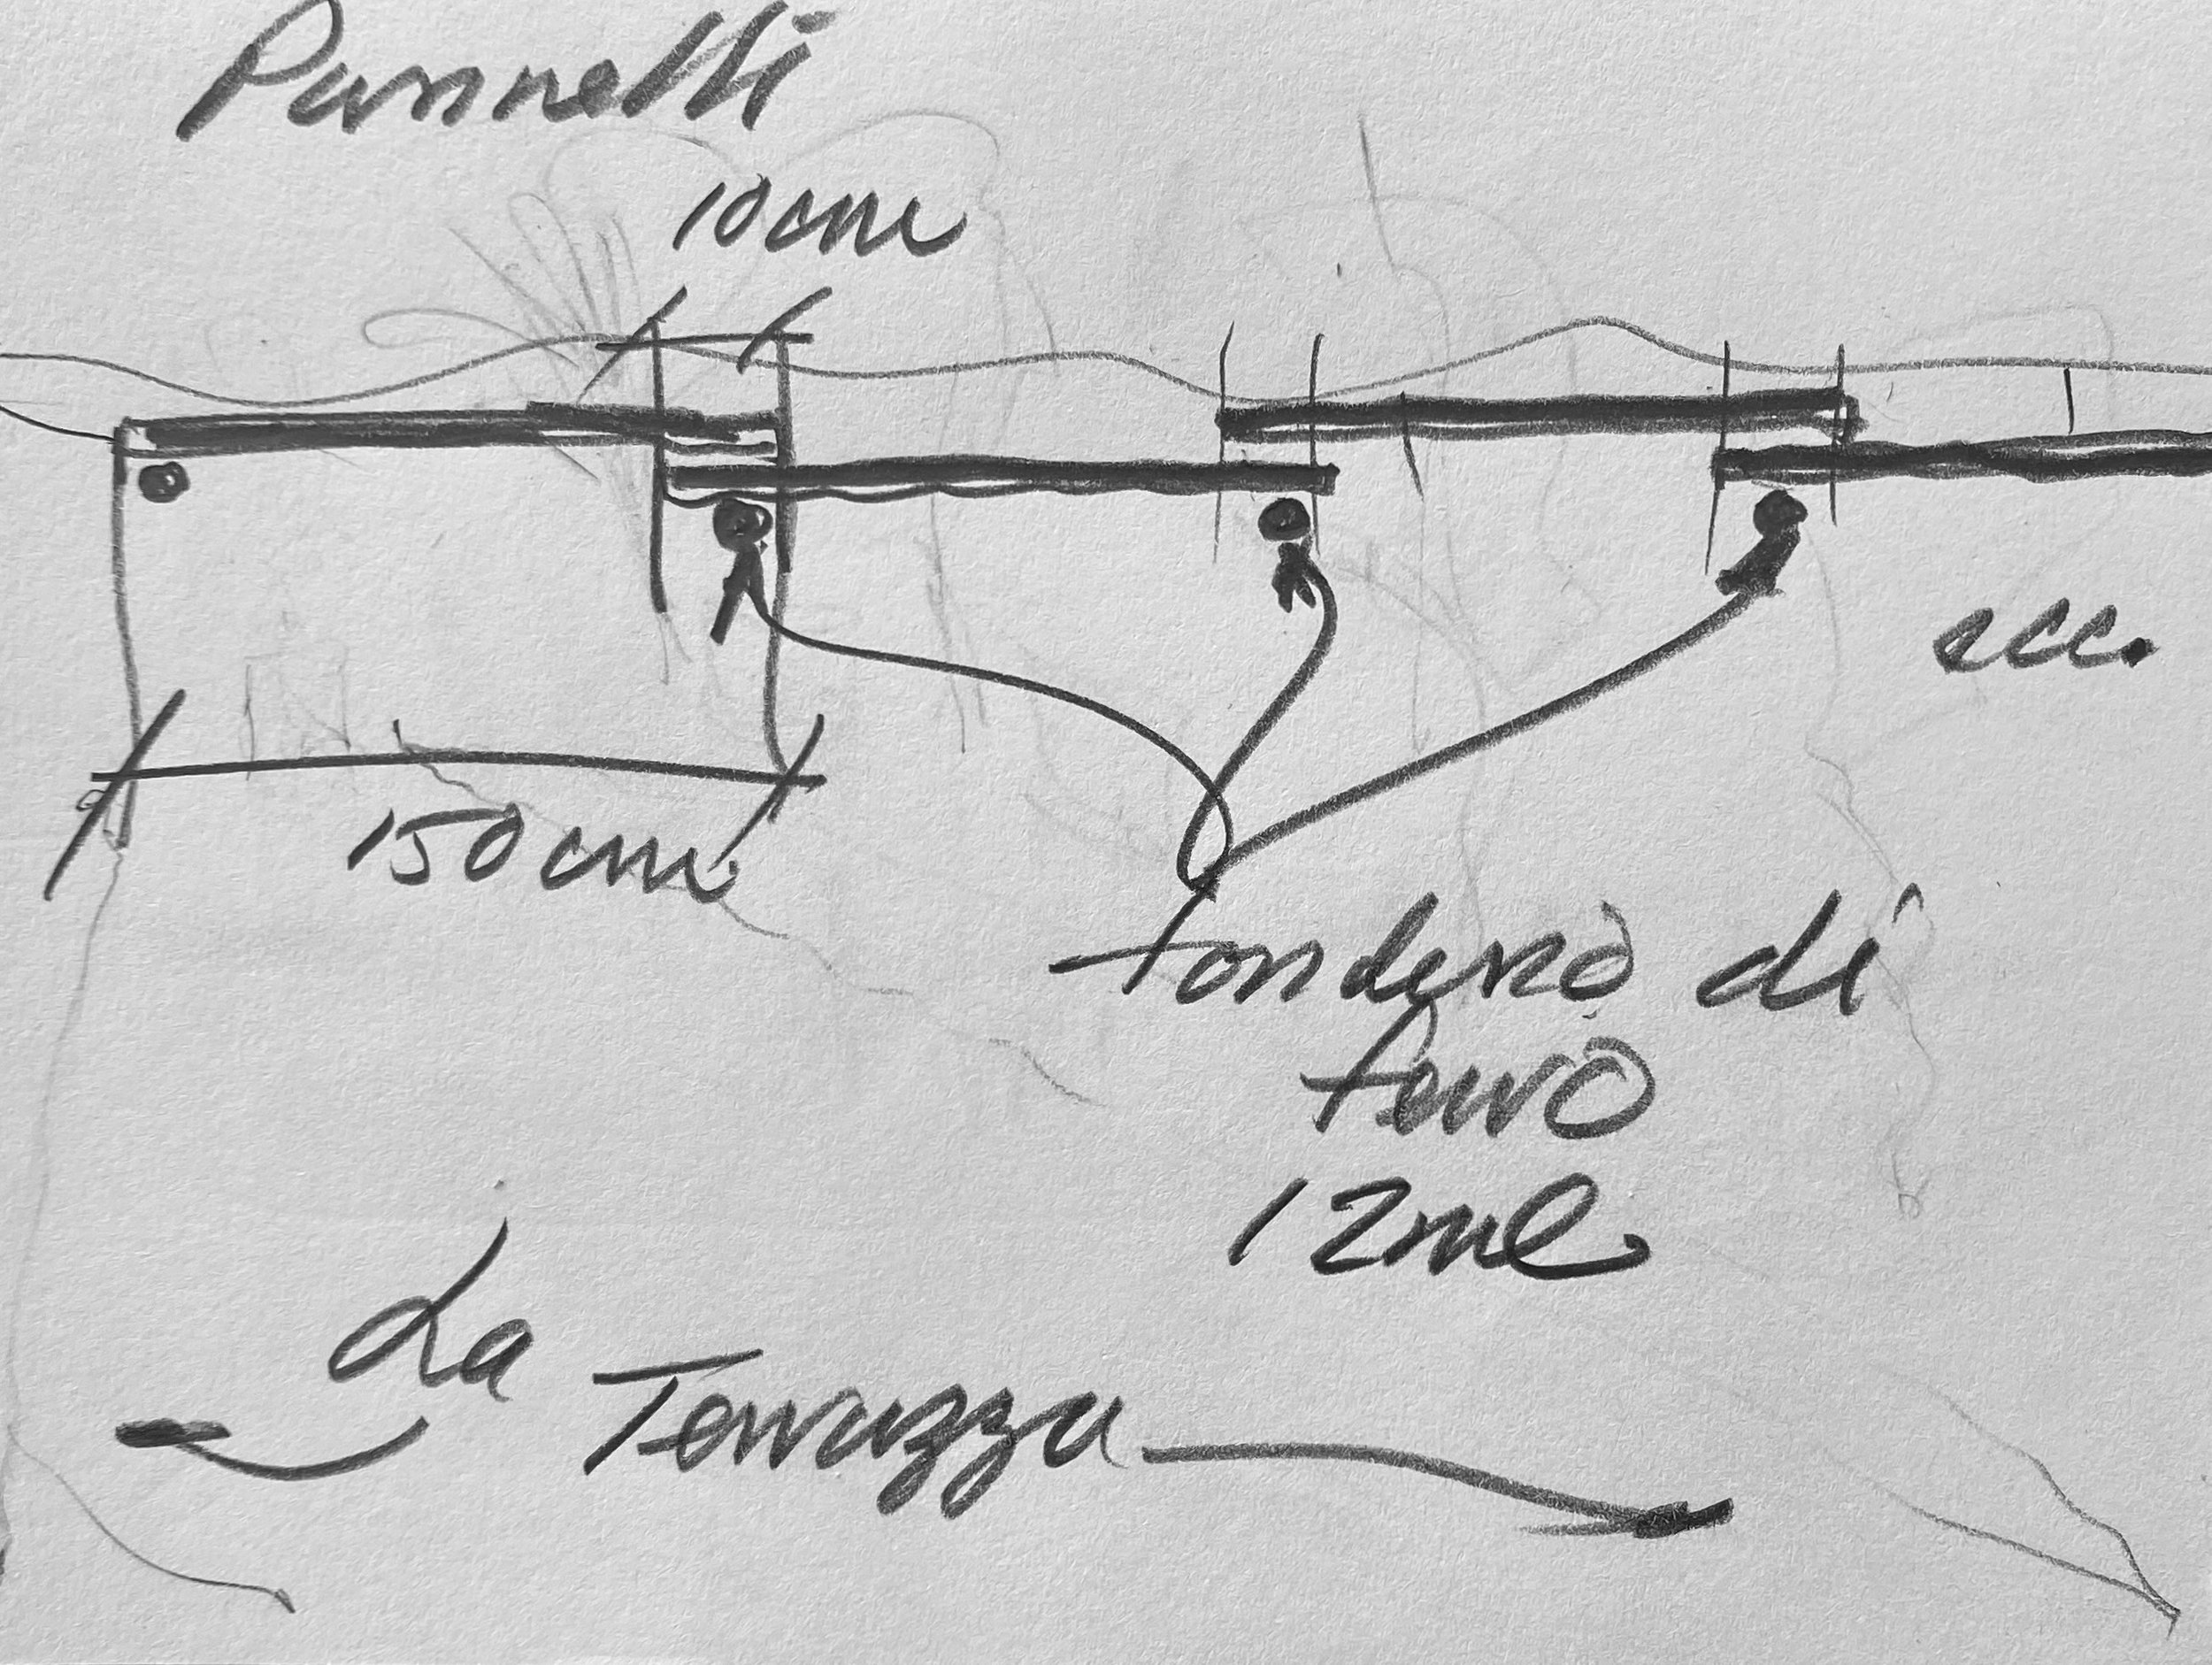 Pannelli
10 cm
ecc.
150 cm
tondino di
ferro
12 ml
La
Terrazza